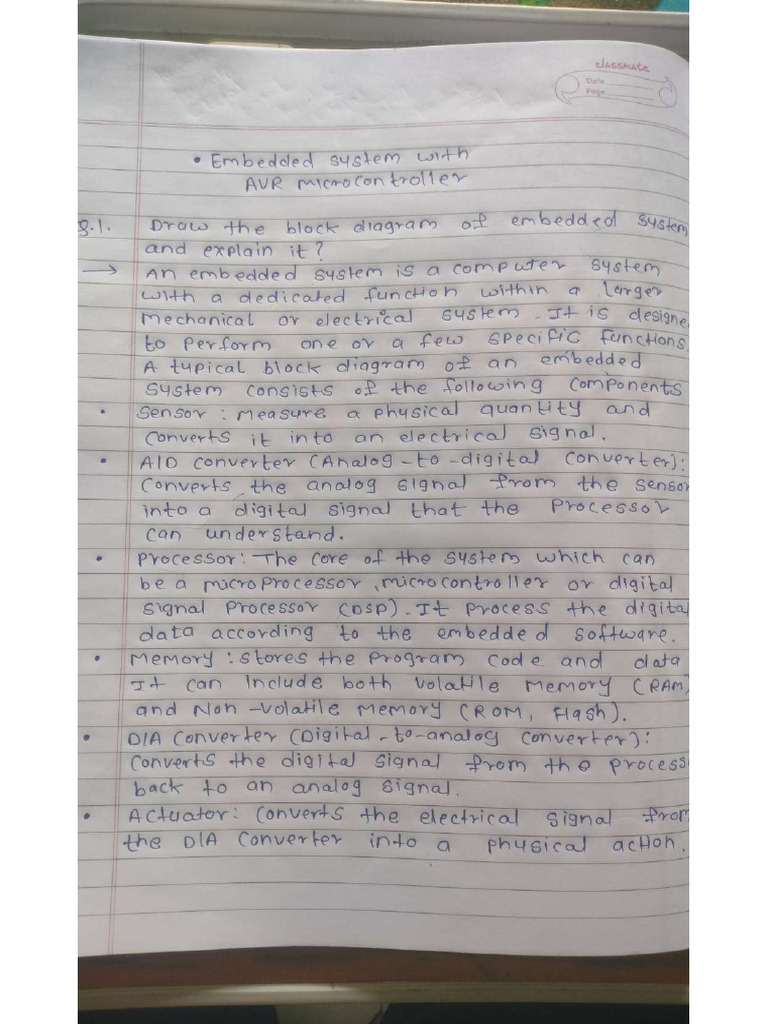 classmate
Date
Page
• Embedded system with
AVR microcontroller
g.1. Draw the block diagram of embedded system
and explain it?
→ An embedded system is a computer system
with a dedicated function within a larger
mechanical or electrical system. It is designe
to perform one or a few specific functions.
A typical block diagram of an embedded
system consists of the following components
• Sensor : measure a physical quantity and
converts it into an electrical signal.
• A/D converter (Analog-to-digital converter):
converts the analog signal from the sensor
into a digital signal that the processor
can understand.
• Processor: The core of the system which can
be a microprocessor, microcontroller or digital
signal processor (DSP). It process the digital
data according to the embedded software.
• Memory : stores the program code and data
It can include both volatile memory (RAM)
and Non-volatile memory (ROM, flash).
• D/A converter (Digital-to-analog converter):
converts the digital signal from the process
back to an analog signal.
• Actuator: converts the electrical signal from
the D/A converter into a physical action.